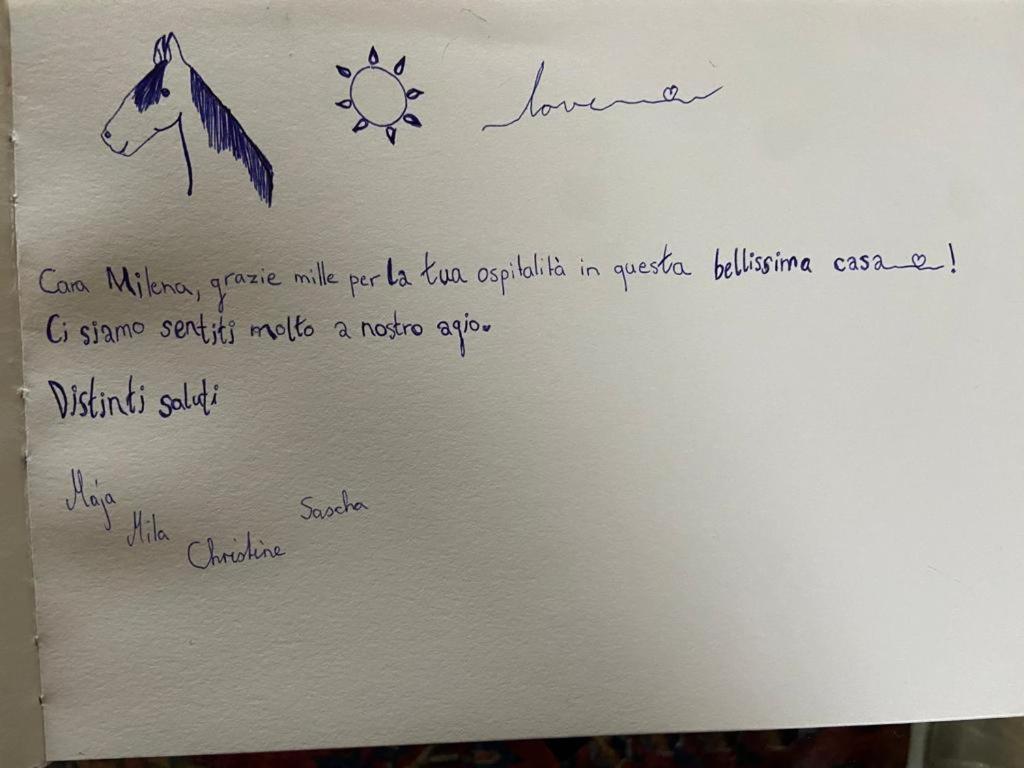 love
Cara Milena, grazie mille per la tua ospitalità in questa bellissima casa!
Ci siamo sentiti molto a nostro agio.
Distinti saluti
Maja
Mila
Christine
Sascha